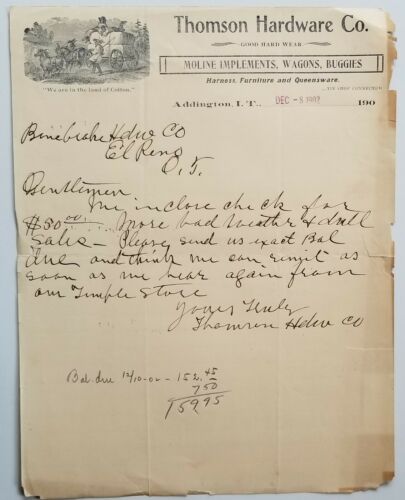 Thomson Hardware Co.
GOOD HARD WEAR
MOLINE IMPLEMENTS, WAGONS, BUGGIES
Harness, Furniture and Queensware.
TIN SHOP CONNECTED
"We are in the land of Cotton."
Addington, I. T., DEC -8 1902 190
Binebrake Hdw Co
El Reno
O. T.
Gentlemen
We inclose check for
$50.00. More bad weather & dull
Sales - Please send us exact Bal
due and think we can remit as
soon as we hear again from
our Temple Store
Yours Truly
Thomson Hdw Co
Bal due 12/10-02 - 152.45
7 50
159 95